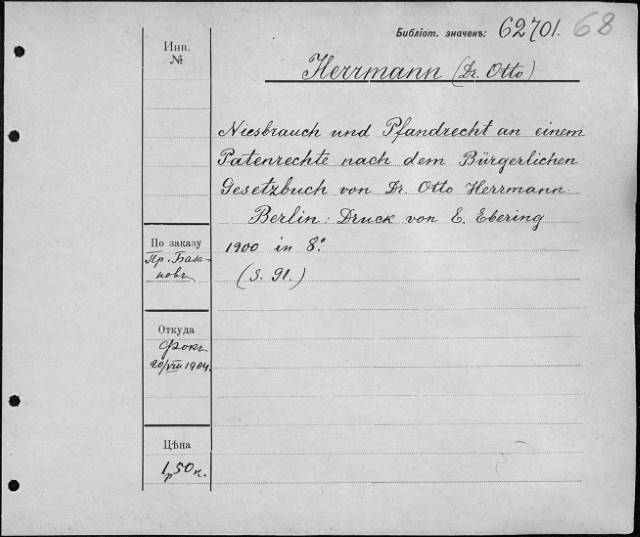 Библіот. значекъ: 62701. 68
Инв.
№
Herrmann (Dr. Otto)
Niesbrauch und Pfandrecht an einem
Patenrechte nach dem Bürgerlichen
Gesetzbuch von Dr. Otto Herrmann.
Berlin: Druck von E. Ebering
1900 in 8.°
(S. 91.)
По заказу
Пр.
Откуда
Фокъ
20/VIII 1904.
Цѣна
1 р 50 к.